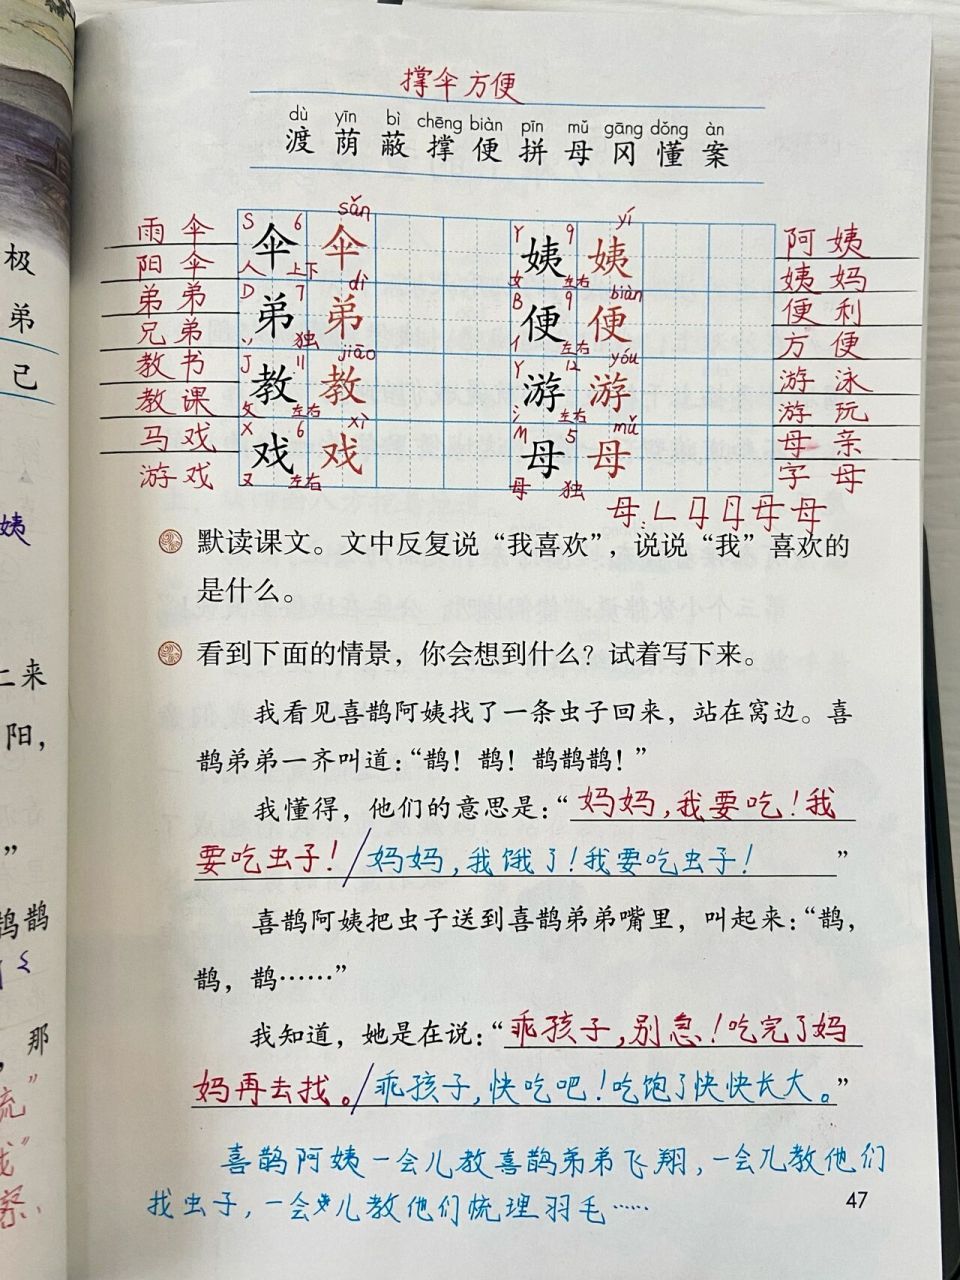 撑伞方便
dù yīn bì chēng biàn pīn mǔ gāng dǒng àn
渡 荫 蔽 撑 便 拼 母 冈 懂 案
雨伞 S 6 伞 sǎn 伞 人 上下 Y 9 姨 yí 姨 女 左右 阿姨
阳伞 姨妈
弟弟 D 7 弟 dì 弟 丷 独 B 9 便 biàn 便 亻 左右 便利
兄弟 方便
教书 J 11 教 jiāo 教 攵 左右 Y 12 游 yóu 游 氵 左右 游泳
教课 游玩
马戏 X 6 戏 xì 戏 又 左右 M 5 母 mǔ 母 母 独 母亲
游戏 字母
母:
默读课文。文中反复说“我喜欢”，说说“我”喜欢的
是什么。
看到下面的情景，你会想到什么？试着写下来。
我看见喜鹊阿姨找了一条虫子回来，站在窝边。喜
鹊弟弟一齐叫道：“鹊！鹊！鹊鹊鹊！”
我懂得，他们的意思是：“妈妈，我要吃！我
要吃虫子！/妈妈，我饿了！我要吃虫子！”
喜鹊阿姨把虫子送到喜鹊弟弟嘴里，叫起来：“鹊，
鹊，鹊……”
我知道，她是在说：“乖孩子，别急！吃完了妈
妈再去找。/乖孩子，快吃吧！吃饱了快快长大。”
喜鹊阿姨一会儿教喜鹊弟弟飞翔，一会儿教他们
找虫子，一会儿教他们梳理羽毛……
47
极
弟
己
姨
二来
阳，
”
鹊鹊
，那
流”
我”
察.